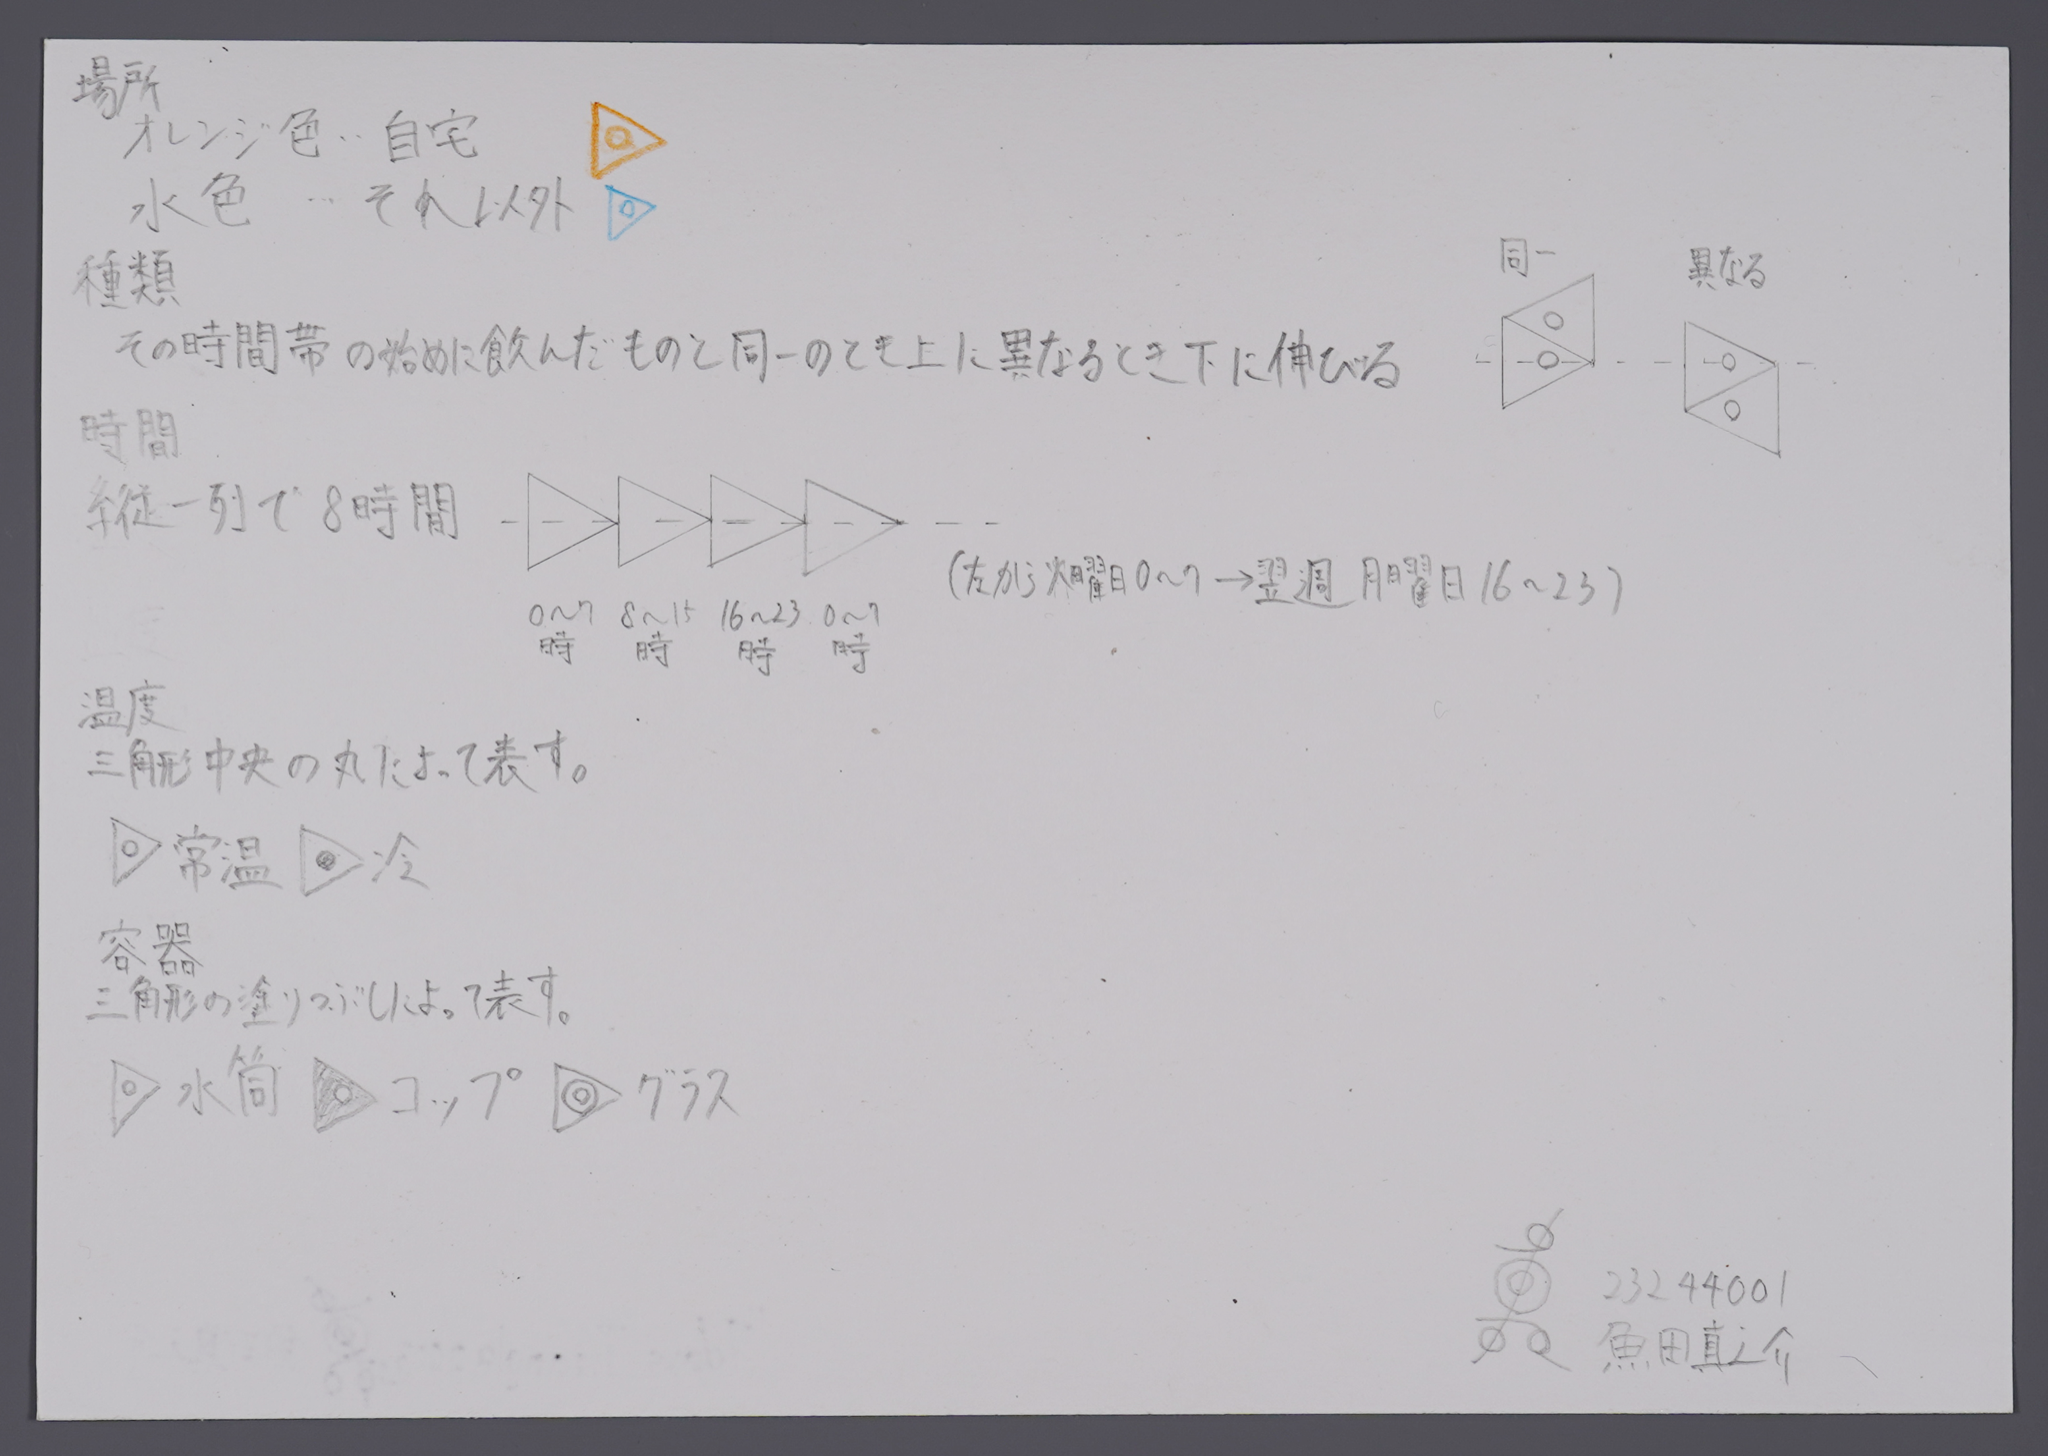 場所
オレンジ色‥自宅
水色 ‥それ以外
種類
その時間帯の始めに飲んだものと同一のとき上に異なるとき下に伸びる
同一
異なる
時間
縦一列で8時間
0〜7時
8〜15時
16〜23時
0〜7時
(左から火曜日0〜7→翌週月曜日16〜23)
温度
三角形中央の丸によって表す。
常温 冷
容器
三角形の塗りつぶしによって表す。
水筒 コップ グラス
23244001
魚田真之介